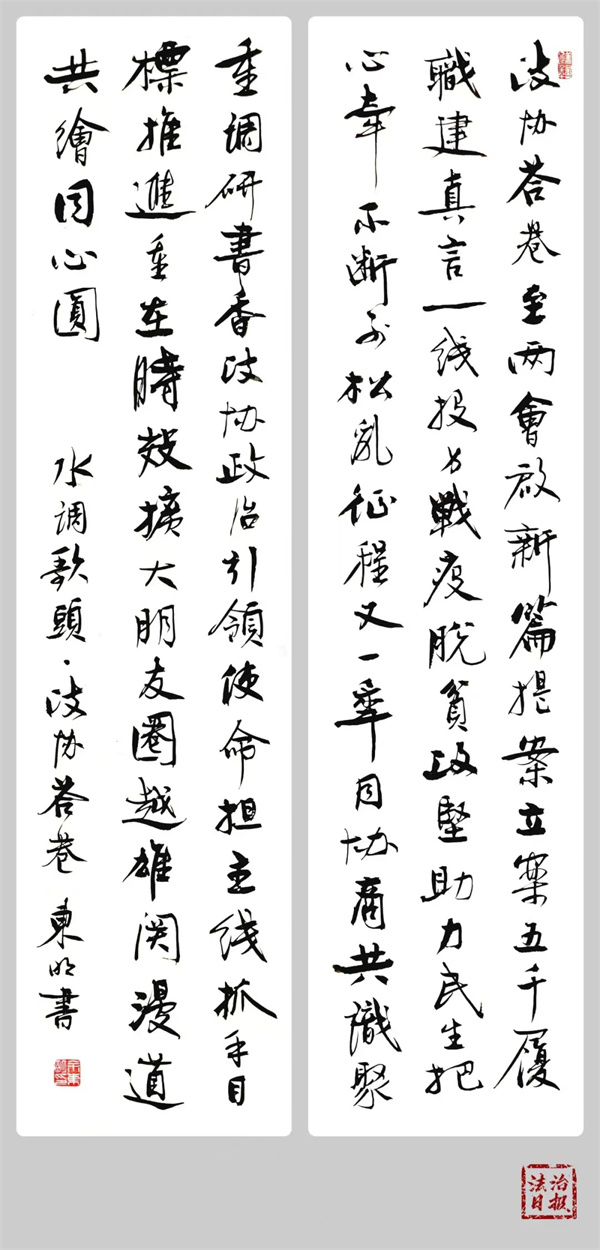 政协荅卷呈两會啟新篇提案立案五千履
職建真言一线投身戰疫脱貧攻堅助力民生把
心牵不断松征程又一年同协商共識聚
重调研書香政协政治引領使命担主线抓手目
標推進重在時效擴大朋友圈越雄関漫道
共繪同心圓
水调歌頭·政协荅卷 東明書
法治日报